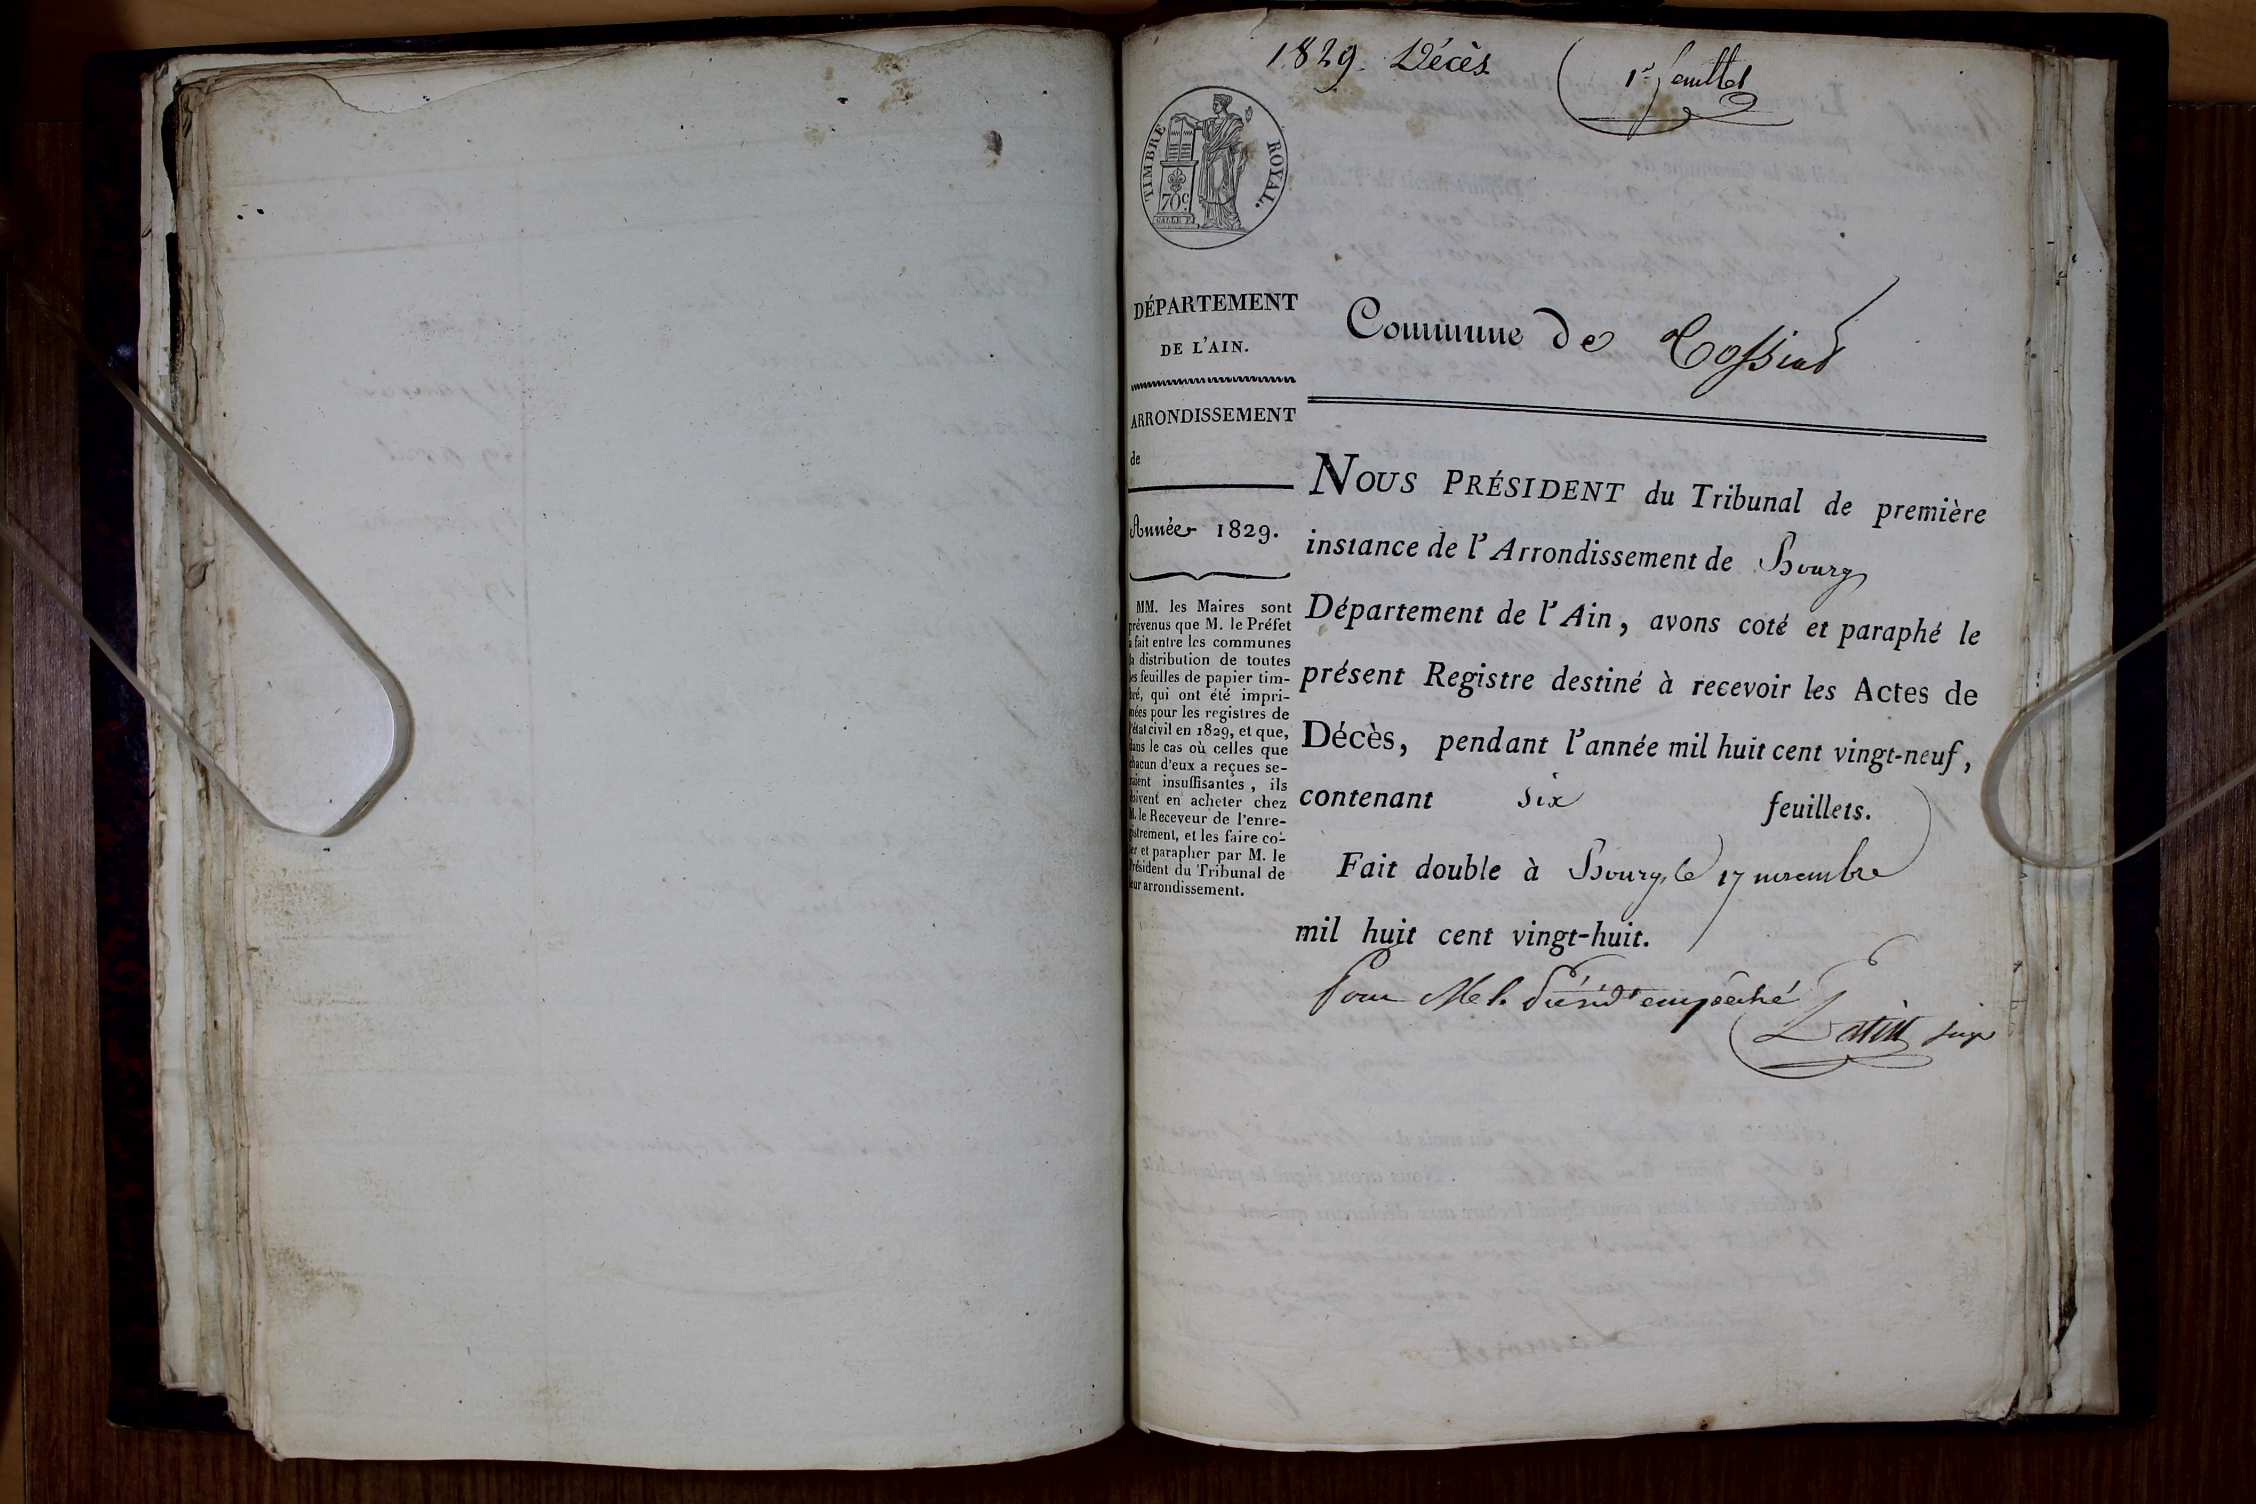 1829. Décès
1er feuillet
TIMBRE ROYAL.
70c
DÉPARTEMENT
DE L'AIN.
ARRONDISSEMENT
de
Année 1829.
MM. les Maires sont
prévenus que M. le Préfet
a fait entre les communes
la distribution de toutes
les feuilles de papier tim-
bré, qui ont été impri-
mées pour les registres de
l'état civil en 1829, et que,
dans le cas où celles que
chacun d'eux a reçues se-
raient insuffisantes, ils
doivent en acheter chez
M. le Receveur de l'enre-
gistrement, et les faire co-
ter et parapher par M. le
Président du Tribunal de
leur arrondissement.
Commune de Tossiat
NOUS PRÉSIDENT du Tribunal de première
instance de l'Arrondissement de Bourg
Département de l'Ain, avons coté et paraphé le
présent Registre destiné à recevoir les Actes de
Décès, pendant l'année mil huit cent vingt-neuf,
contenant six feuillets.
Fait double à Bourg, le 17 novembre
mil huit cent vingt-huit.
Pour Mr le Présidt empêché
juge